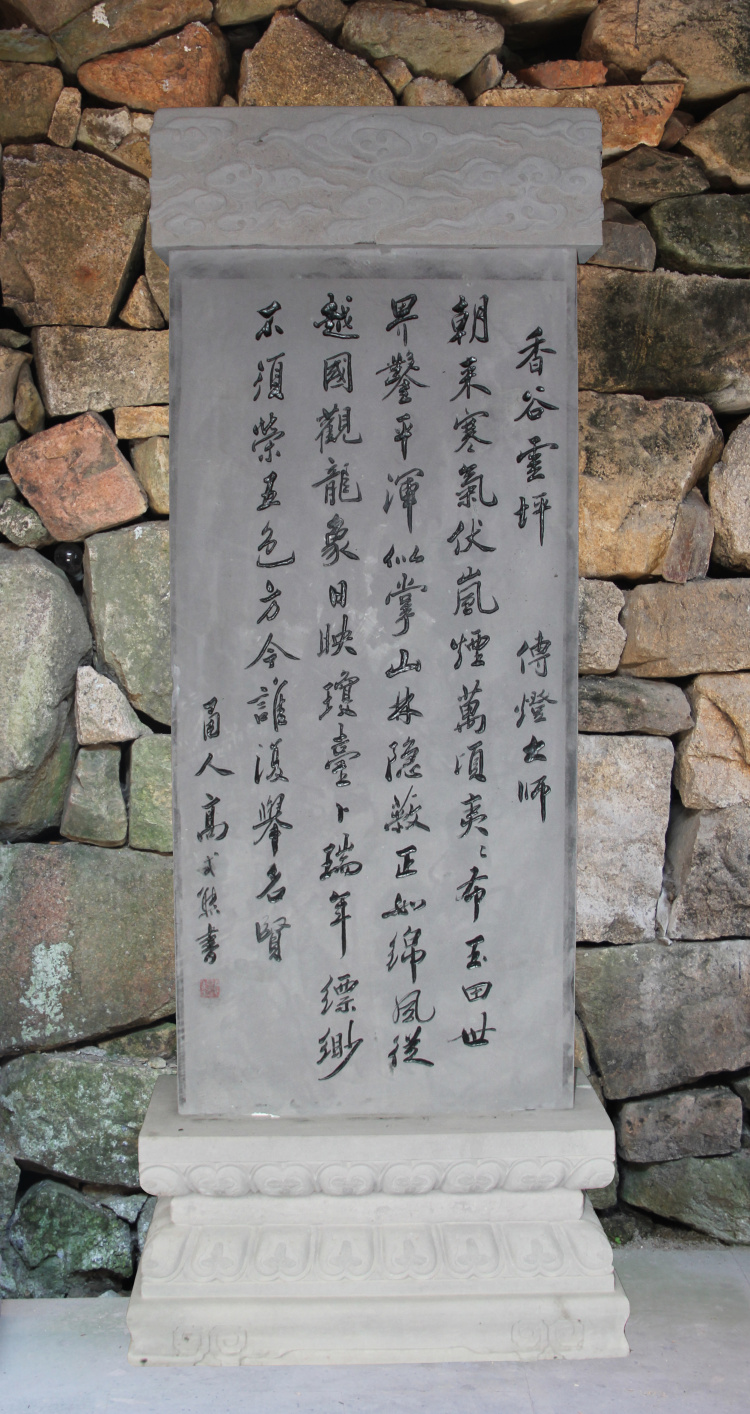 香谷靈坪 傳燈大师
朝来寒氣伏嵐煙萬頃夷〻布玉田世
界鑿平渾似掌山林隐薮正如綿風從
越國觀龍象日映瓊臺卜瑞年縹緲
不須榮五色方今誰復舉名賢
甬人高式熊書